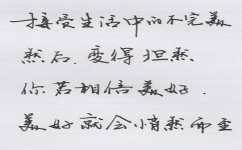 接受生活中的不完美
然后，变得坦然
你若相信美好，
美好就会悄然而至